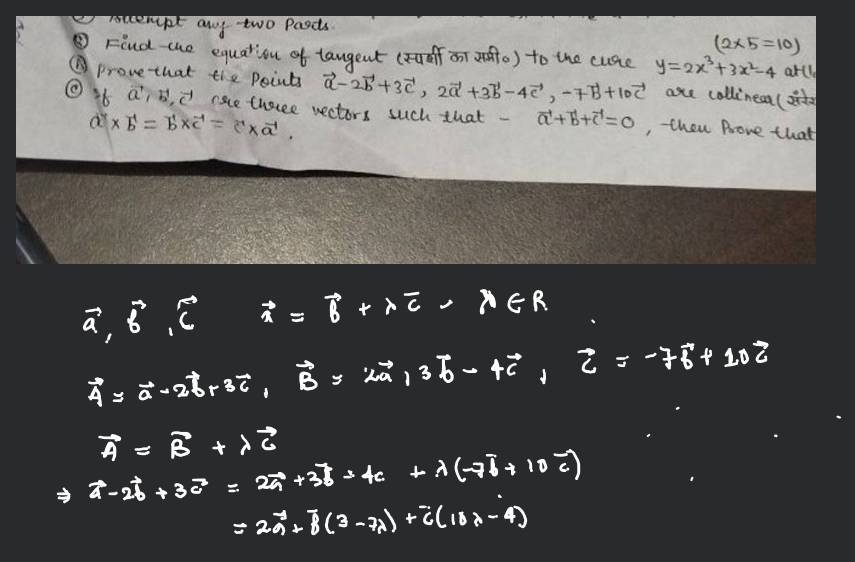 Attempt any two Parts.
(2x5=10)
Find the equation of tangent (स्पर्शी का समी०) to the curve y=2x³+3x²-4 at (
Prove that the Points a⃗-2b⃗+3c⃗, 2a⃗+3b⃗-4c⃗, -7b⃗+10c⃗ are collinear (
© If a⃗, b⃗, c⃗ are three vectors such that - a⃗+b⃗+c⃗=0, then Prove that
a⃗×b⃗ = b⃗×c⃗ = c⃗×a⃗.
a⃗, b⃗, c⃗ = b⃗ + λc̄ λ ∈ R
A⃗ = a⃗-2b⃗+3c̄, B⃗ = 2a⃗+3b̄-4c⃗, c⃗ = -7b⃗+10c⃗
A⃗ = B̄ + λc⃗
⇒ a⃗-2b⃗+3c⃗ = 2a⃗+3b⃗-4c + λ(-7b̄+10c̄)
= 2a⃗+b̄(3-7λ)+c̄(10λ-4)